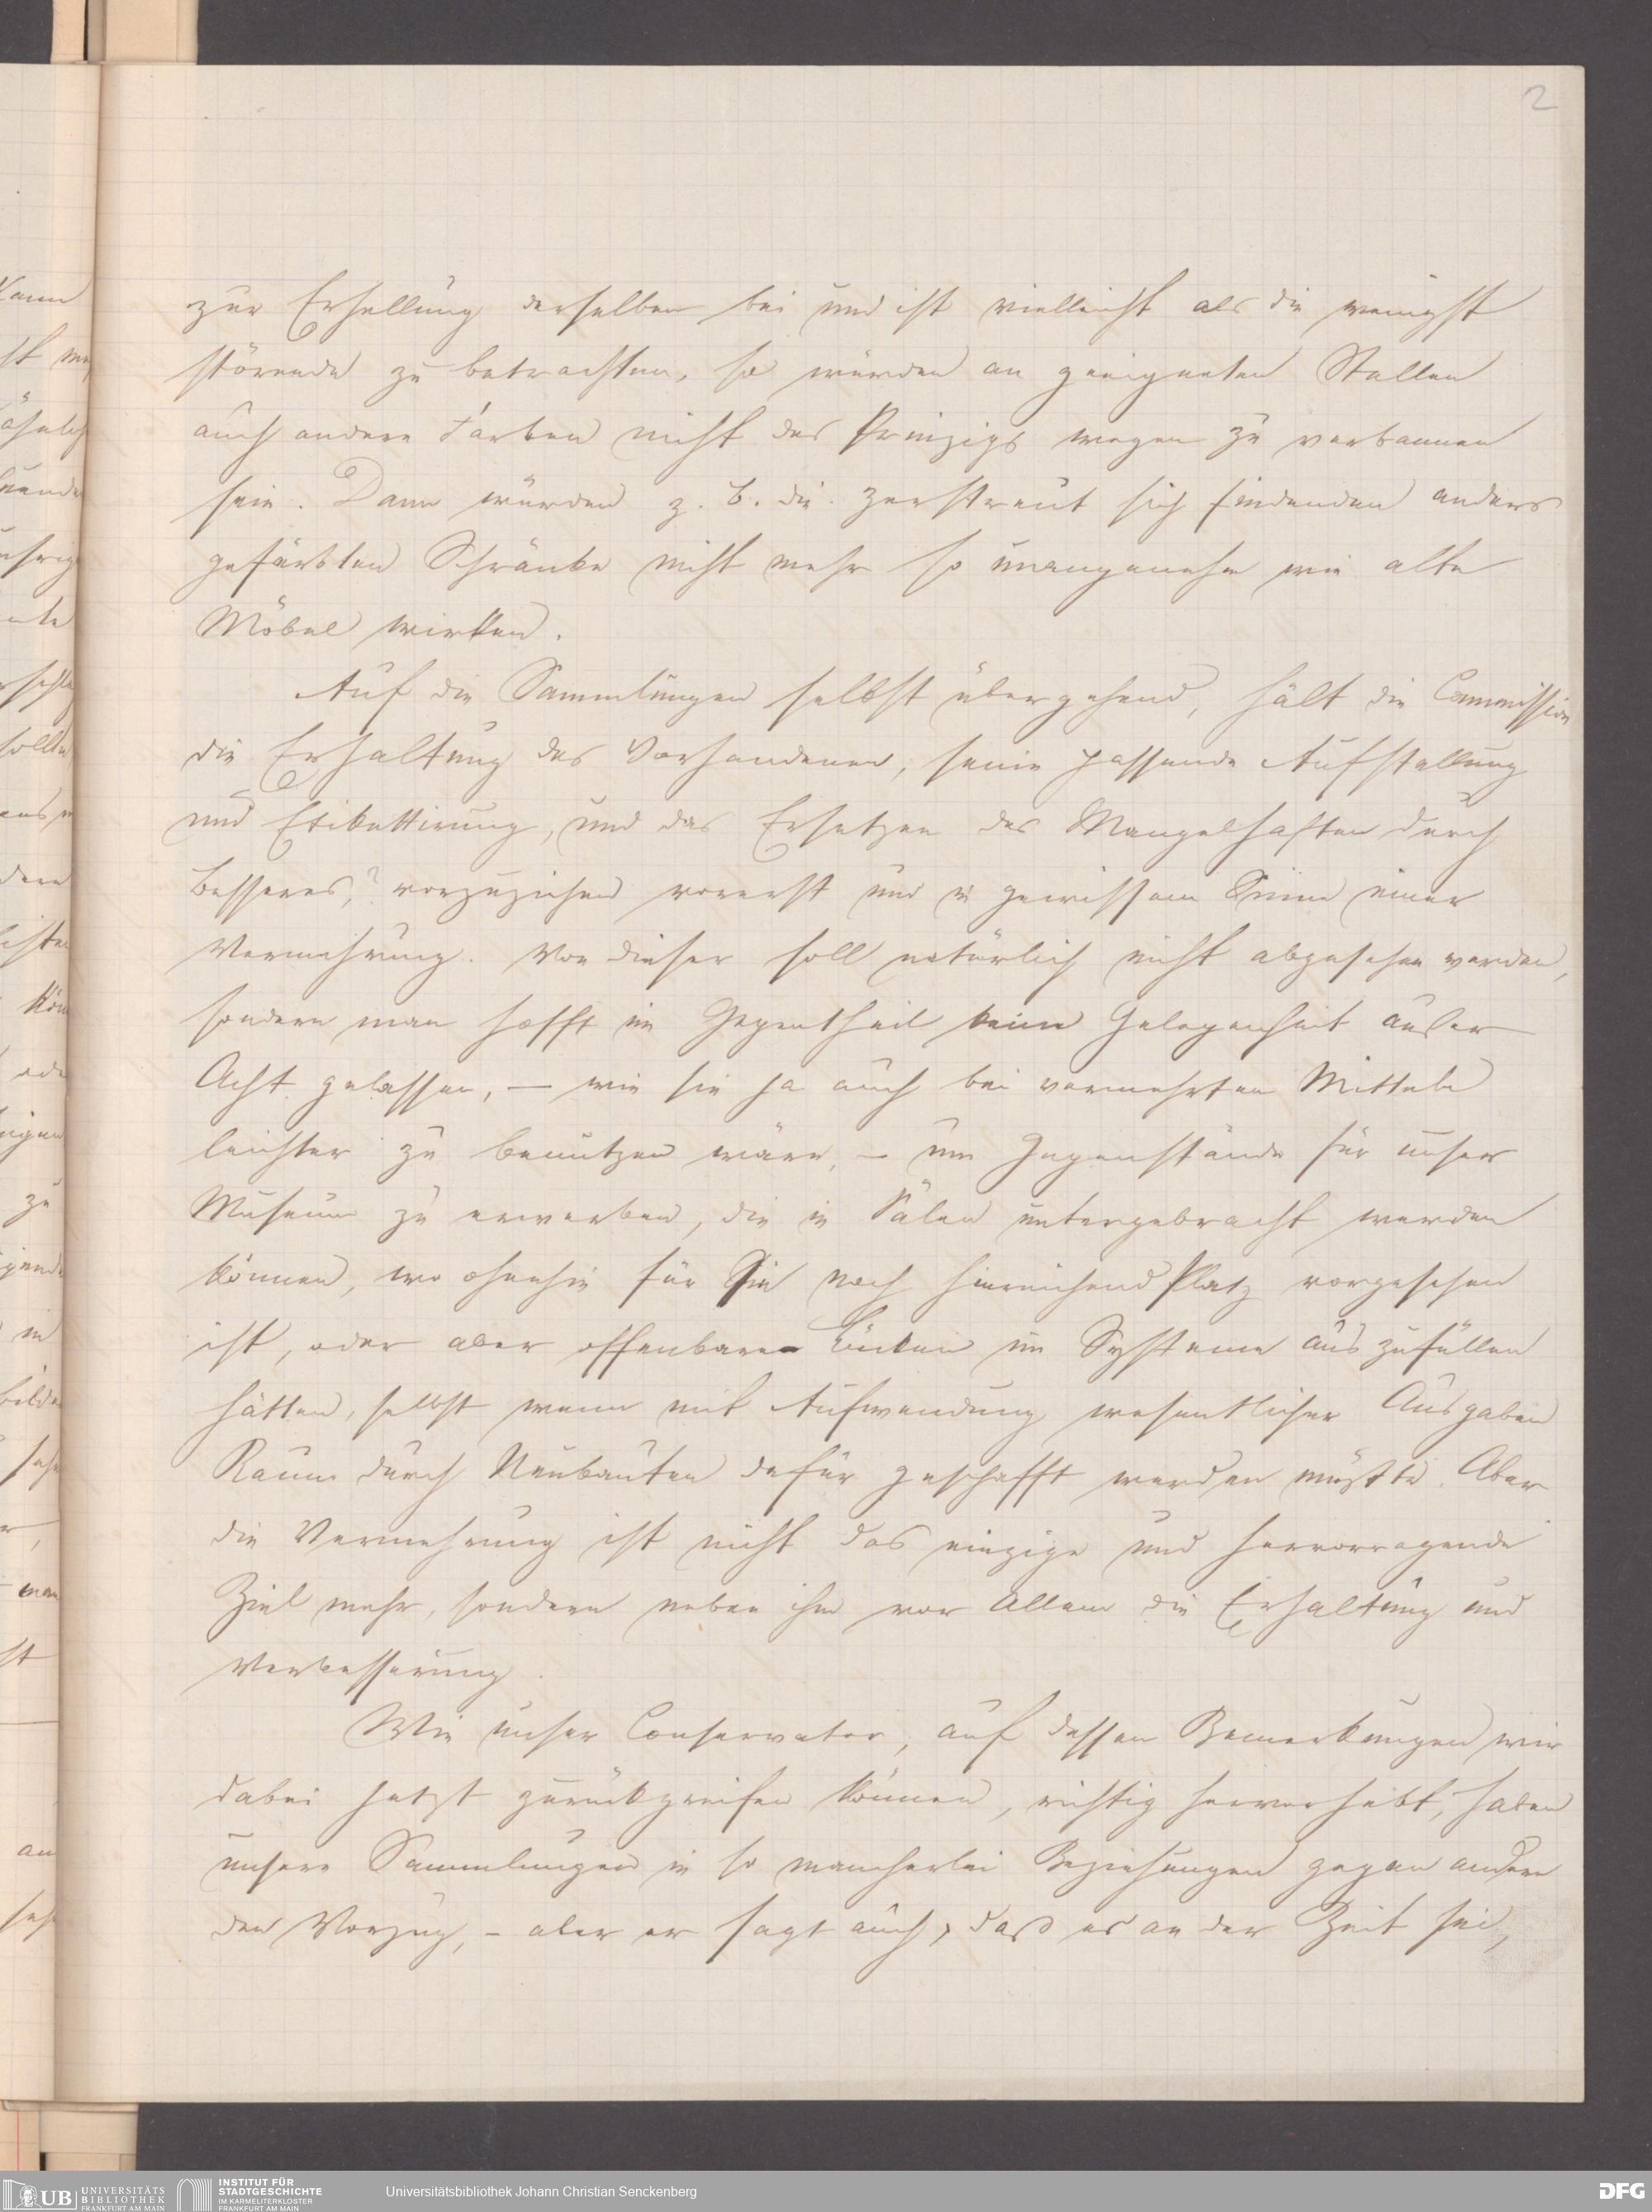 2
zur Erhellung derselben bei und ist vielleicht als die wenigst
störende zu betrachten, so würden an geeigneten Stellen
auch andere Farben nicht des Prinzips wegen zu verbannen
sein. Dann würden z. B. die zerstreut sich findenden anders
gefärbten Schränke nicht mehr so unangenehm wie alte
Möbel wirken.
Auf die Sammlungen selbst übergehend, hält die Commission
die Erhaltung des Vorhandenen, seine passende Aufstellung
und Etikettirung, und das Ersetzen des Mangelhaften durch
Besseres, vorzuziehen vorerst und in gewissem Sinne einer
Vermehrung. Von dieser soll natürlich nicht abgesehen werden,
sondern man hofft im Gegentheil keine Gelegenheit außer
Acht gelassen, — wie sie ja auch bei vermehrten Mitteln
leichter zu benutzen wäre, — um Gegenstände für unser
Museum zu erwerben, die in Sälen untergebracht werden
können, wo ohnehin für Sie noch hinreichend Platz vorgesehen
ist, oder aber offenbare Lücken im Systeme auszufüllen
hätten, selbst wenn mit Aufwendung wesentlicher Ausgaben
Raum durch Neubauten dafür geschafft werden müßte. Aber
die Vermehrung ist nicht das einzige und hervorragende
Ziel mehr, sondern neben ihm vor Allem die Erhaltung und
Verbesserung.
Wie unser Conservator, auf dessen Bemerkungen wir
dabei jetzt zurückgreifen können, richtig hervorhebt, haben
unsere Sammlungen in so mancherlei Beziehungen gegen andere
den Vorzug, – aber er sagt auch, daß es an der Zeit sei,
UB UNIVERSITÄTS
BIBLIOTHEK
FRANKFURT AM MAIN
INSTITUT FÜR
STADTGESCHICHTE
IM KARMELITERKLOSTER
FRANKFURT AM MAIN
Universitätsbibliothek Johann Christian Senckenberg
DFG